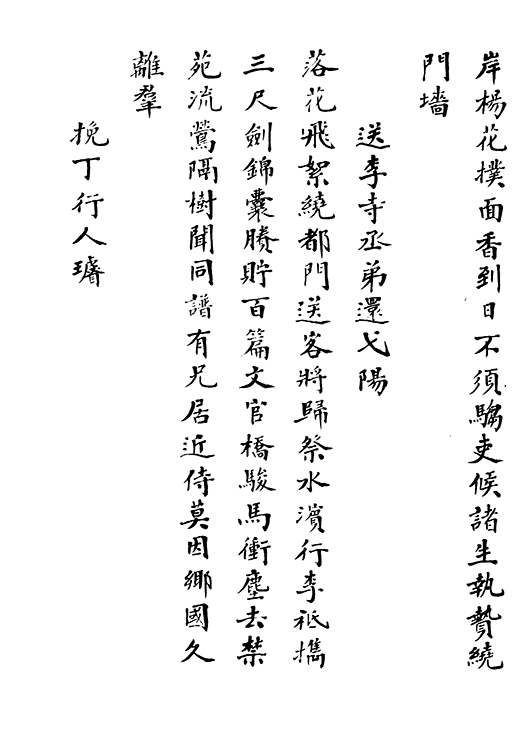 岸楊花撲面香到日不須騶吏候諸生執贄繞
門墻
送李寺丞弟還弋陽
落花飛絮繞都門送客將歸祭水濆行李祗攜
三尺劍錦囊賸貯百篇文官橋駿馬衝塵去禁
苑流鶯隔樹聞同譜有兄居近侍莫因鄉國久
離羣
挽丁行人璿